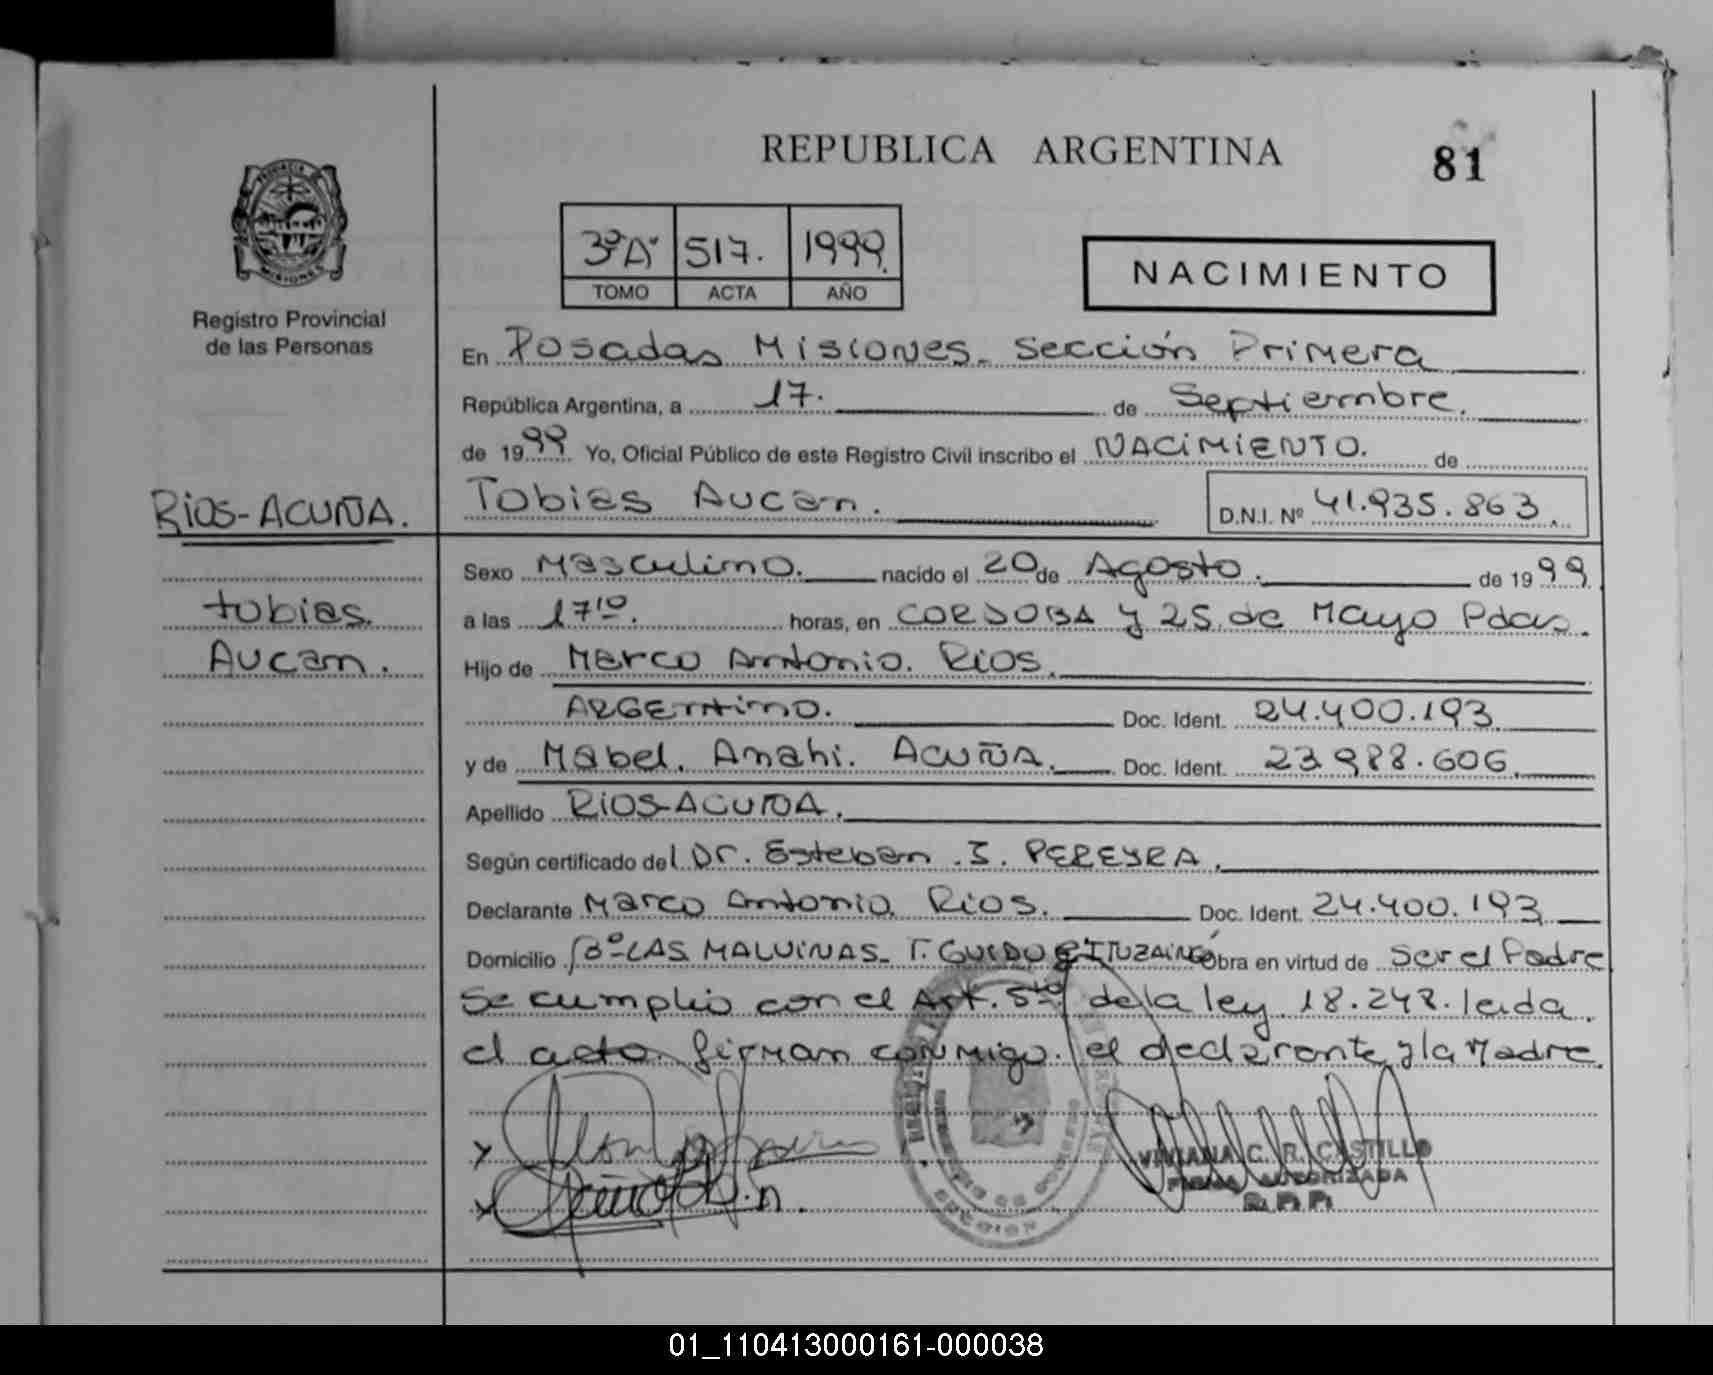 REPUBLICA ARGENTINA
81
PROVINCIA DE
MISIONES
Registro Provincial
de las Personas
3º A 517. 1999.
TOMO ACTA AÑO
NACIMIENTO
En Posadas Misiones. sección Primera
República Argentina, a 17. de Septiembre.
de 1999 Yo, Oficial Público de este Registro Civil inscribo el NACiMIENTO. de
RiOS-ACUÑA.
Tobias Aucan. D.N.I. Nº 41.935.863.
Sexo Masculino. nacido el 20 de Agosto. de 1999
tobias.
a las 17¹⁰. horas, en CORDOBA y 25. de Mayo Pdas.
Aucan.
Hijo de Marco Antonio. Rios.
ARGENtino. Doc. Ident. 24.400.193
y de Mabel. Anahi. ACUÑA. Doc. Ident. 23.988.606
Apellido RiOS-ACUÑA.
Según certificado del Dr. Esteban. J. PEREYRA.
Declarante Marco Antonio. Rios. Doc. Ident. 24.400.193
Domicilio Bº LAS MALVINAS. T. GUIDO E ITUZAINGÓ Obra en virtud de Ser el Padre
se cumplio con el Art. 5to de la ley 18.248. leida.
el acto. firman conmigo. el declarante y la Madre.
VIVIANA C. R. CASTILLO
FIRMA AUTORIZADA
R. P. P.
01_110413000161-000038